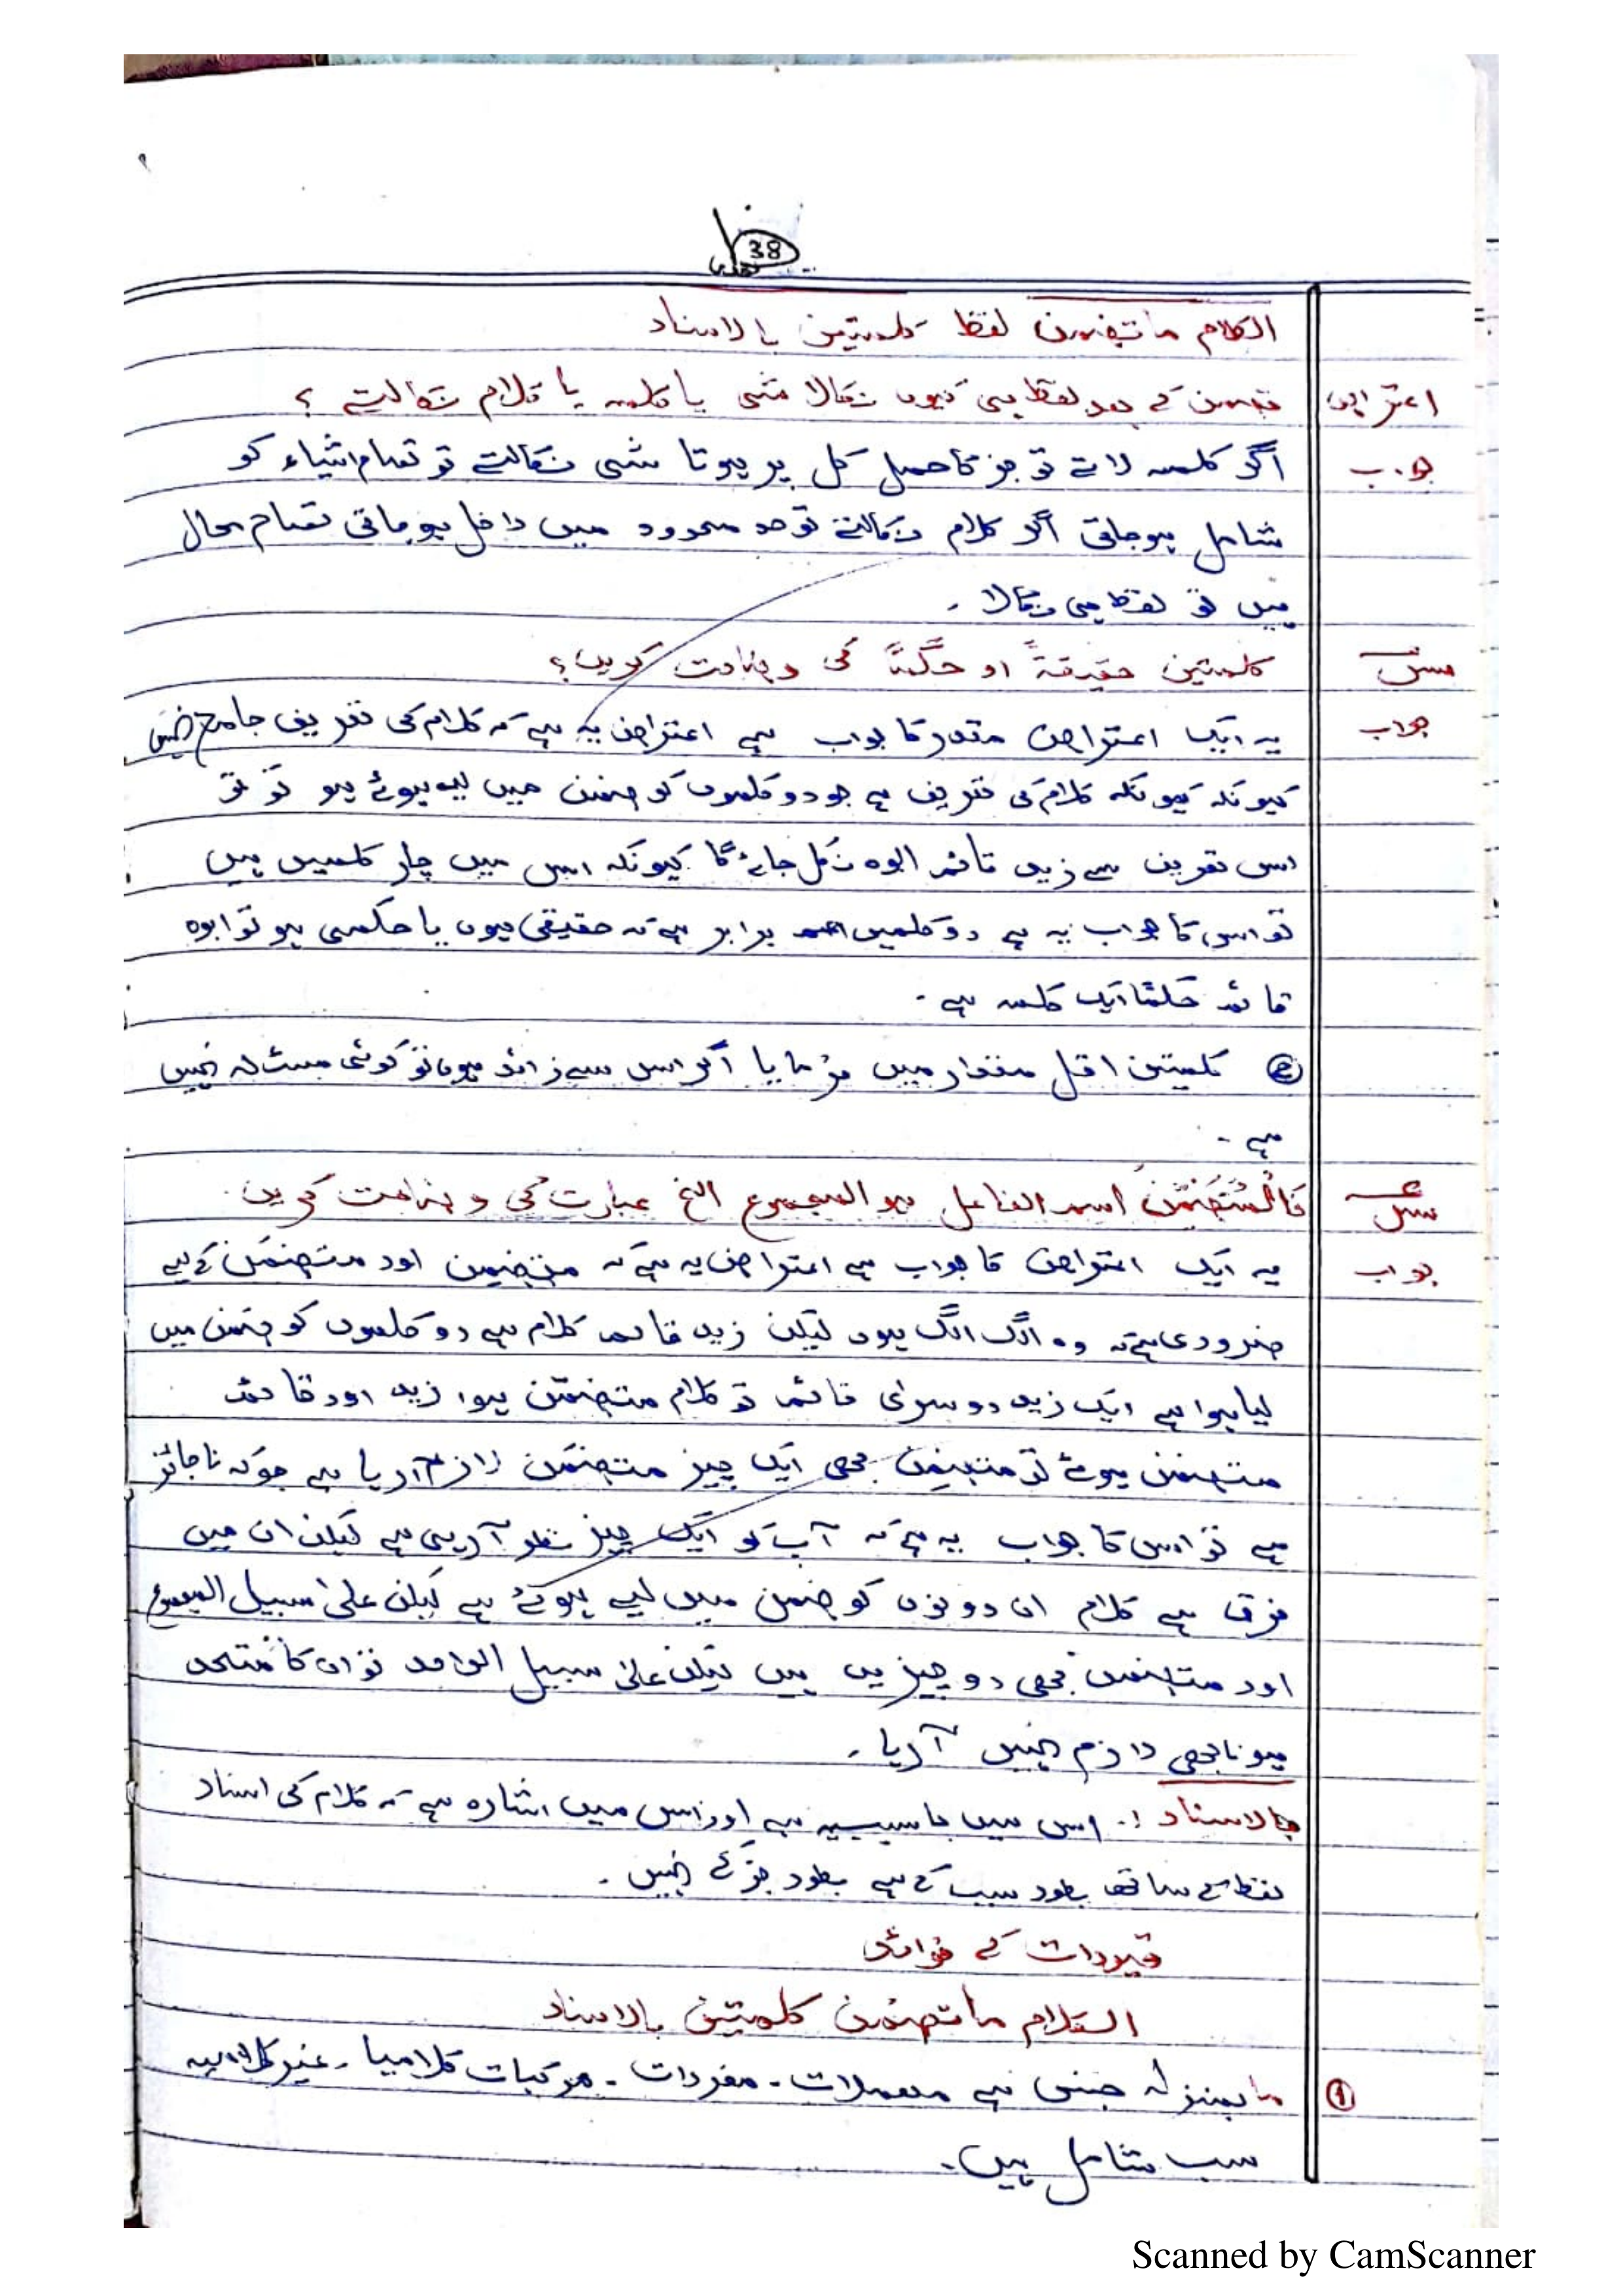 38
الکلام ماتضمن لفظا کلمتین بالاسناد
اعتراض تضمن کے بعد لفظا ہی کیوں نکالا شی یا کلمہ یا کلام نکالتے ؟
جواب اگر کلمہ لاتے تو جز کا حمل کل پر ہوتا شی نکالتے تو تمام اشیاء کو
شامل ہوجاتی اگر کلام نکالتے تو حد محدود میں داخل ہوجاتی تمام محال
ہیں تو لفظا ہی نکالا ۔
س کلمتین حقیقۃً او حکمًا کی وضاحت کریں؟
جواب یہ ایک اعتراض مقدر کا جواب ہے اعتراض یہ ہے کہ کلام کی تعریف جامع نہیں
کیونکہ کیونکہ کلام کی تعریف ہے جو دو کلموں کو ضمن میں لیے ہوئے ہو تو تو
اس تعریف سے زید قائم ابوہ نکل جائے گا کیونکہ اس میں چار کلمیں ہیں
تو اس کا جواب یہ ہے دو کلمیں برابر ہے کہ حقیقی ہوں یا حکمی ہو تو ابوہ
قائم حکمًا ایک کلمہ ہے ۔
② کلمتین اقل مقدار میں فرمایا اگر اس سے زائد ہو تو کوئی مسئلہ نہیں
ہے ۔
س فَالْمُتَضَمِّنُ اسم الفاعل ھو المجموع الخ عبارت کی وضاحت کریں
جواب یہ ایک اعتراض کا جواب ہے اعتراض یہ ہے کہ متضمِن اور متضمَن کے لیے
ضروری ہے کہ وہ الگ الگ ہوں لیکن زید قائم کلام ہے دو کلموں کو ضمن میں
لیا ہوا ہے ایک زید دوسرای قائم تو کلام متضمِن ہوا زید اور قائم
متضمن ہوئے تو متضمِن بھی ایک چیز متضمَن لازم آرہا ہے جو کہ ناجائز
ہے تو اس کا جواب یہ ہے کہ آپ کو ایک چیز نظر آرہی ہے لیکن ان میں
فرق ہے کلام ان دونوں کو ضمن میں لیے ہوئے ہے لیکن علیٰ سبیل المجموع
اور متضمن بھی دو چیزیں ہیں لیکن علیٰ سبیل الواحد تو ان کا متحد
ہونا بھی لازم نہیں آرہا ۔
بالاسناد :۔ اس میں باسببیہ ہے اور اس میں اشارہ ہے کہ کلام کی اسناد
لفظ کے ساتھ بطور سبب کے ہے بطور جز کے نہیں ۔
قیودات کے فوائد
الکلام ماتضمن کلمتین بالاسناد
① ما بمنزلہ جنس ہے مہملات ۔ مفردات ۔ مرکبات کلامیا ۔ غیر کلامیہ
سب شامل ہیں ۔
Scanned by CamScanner